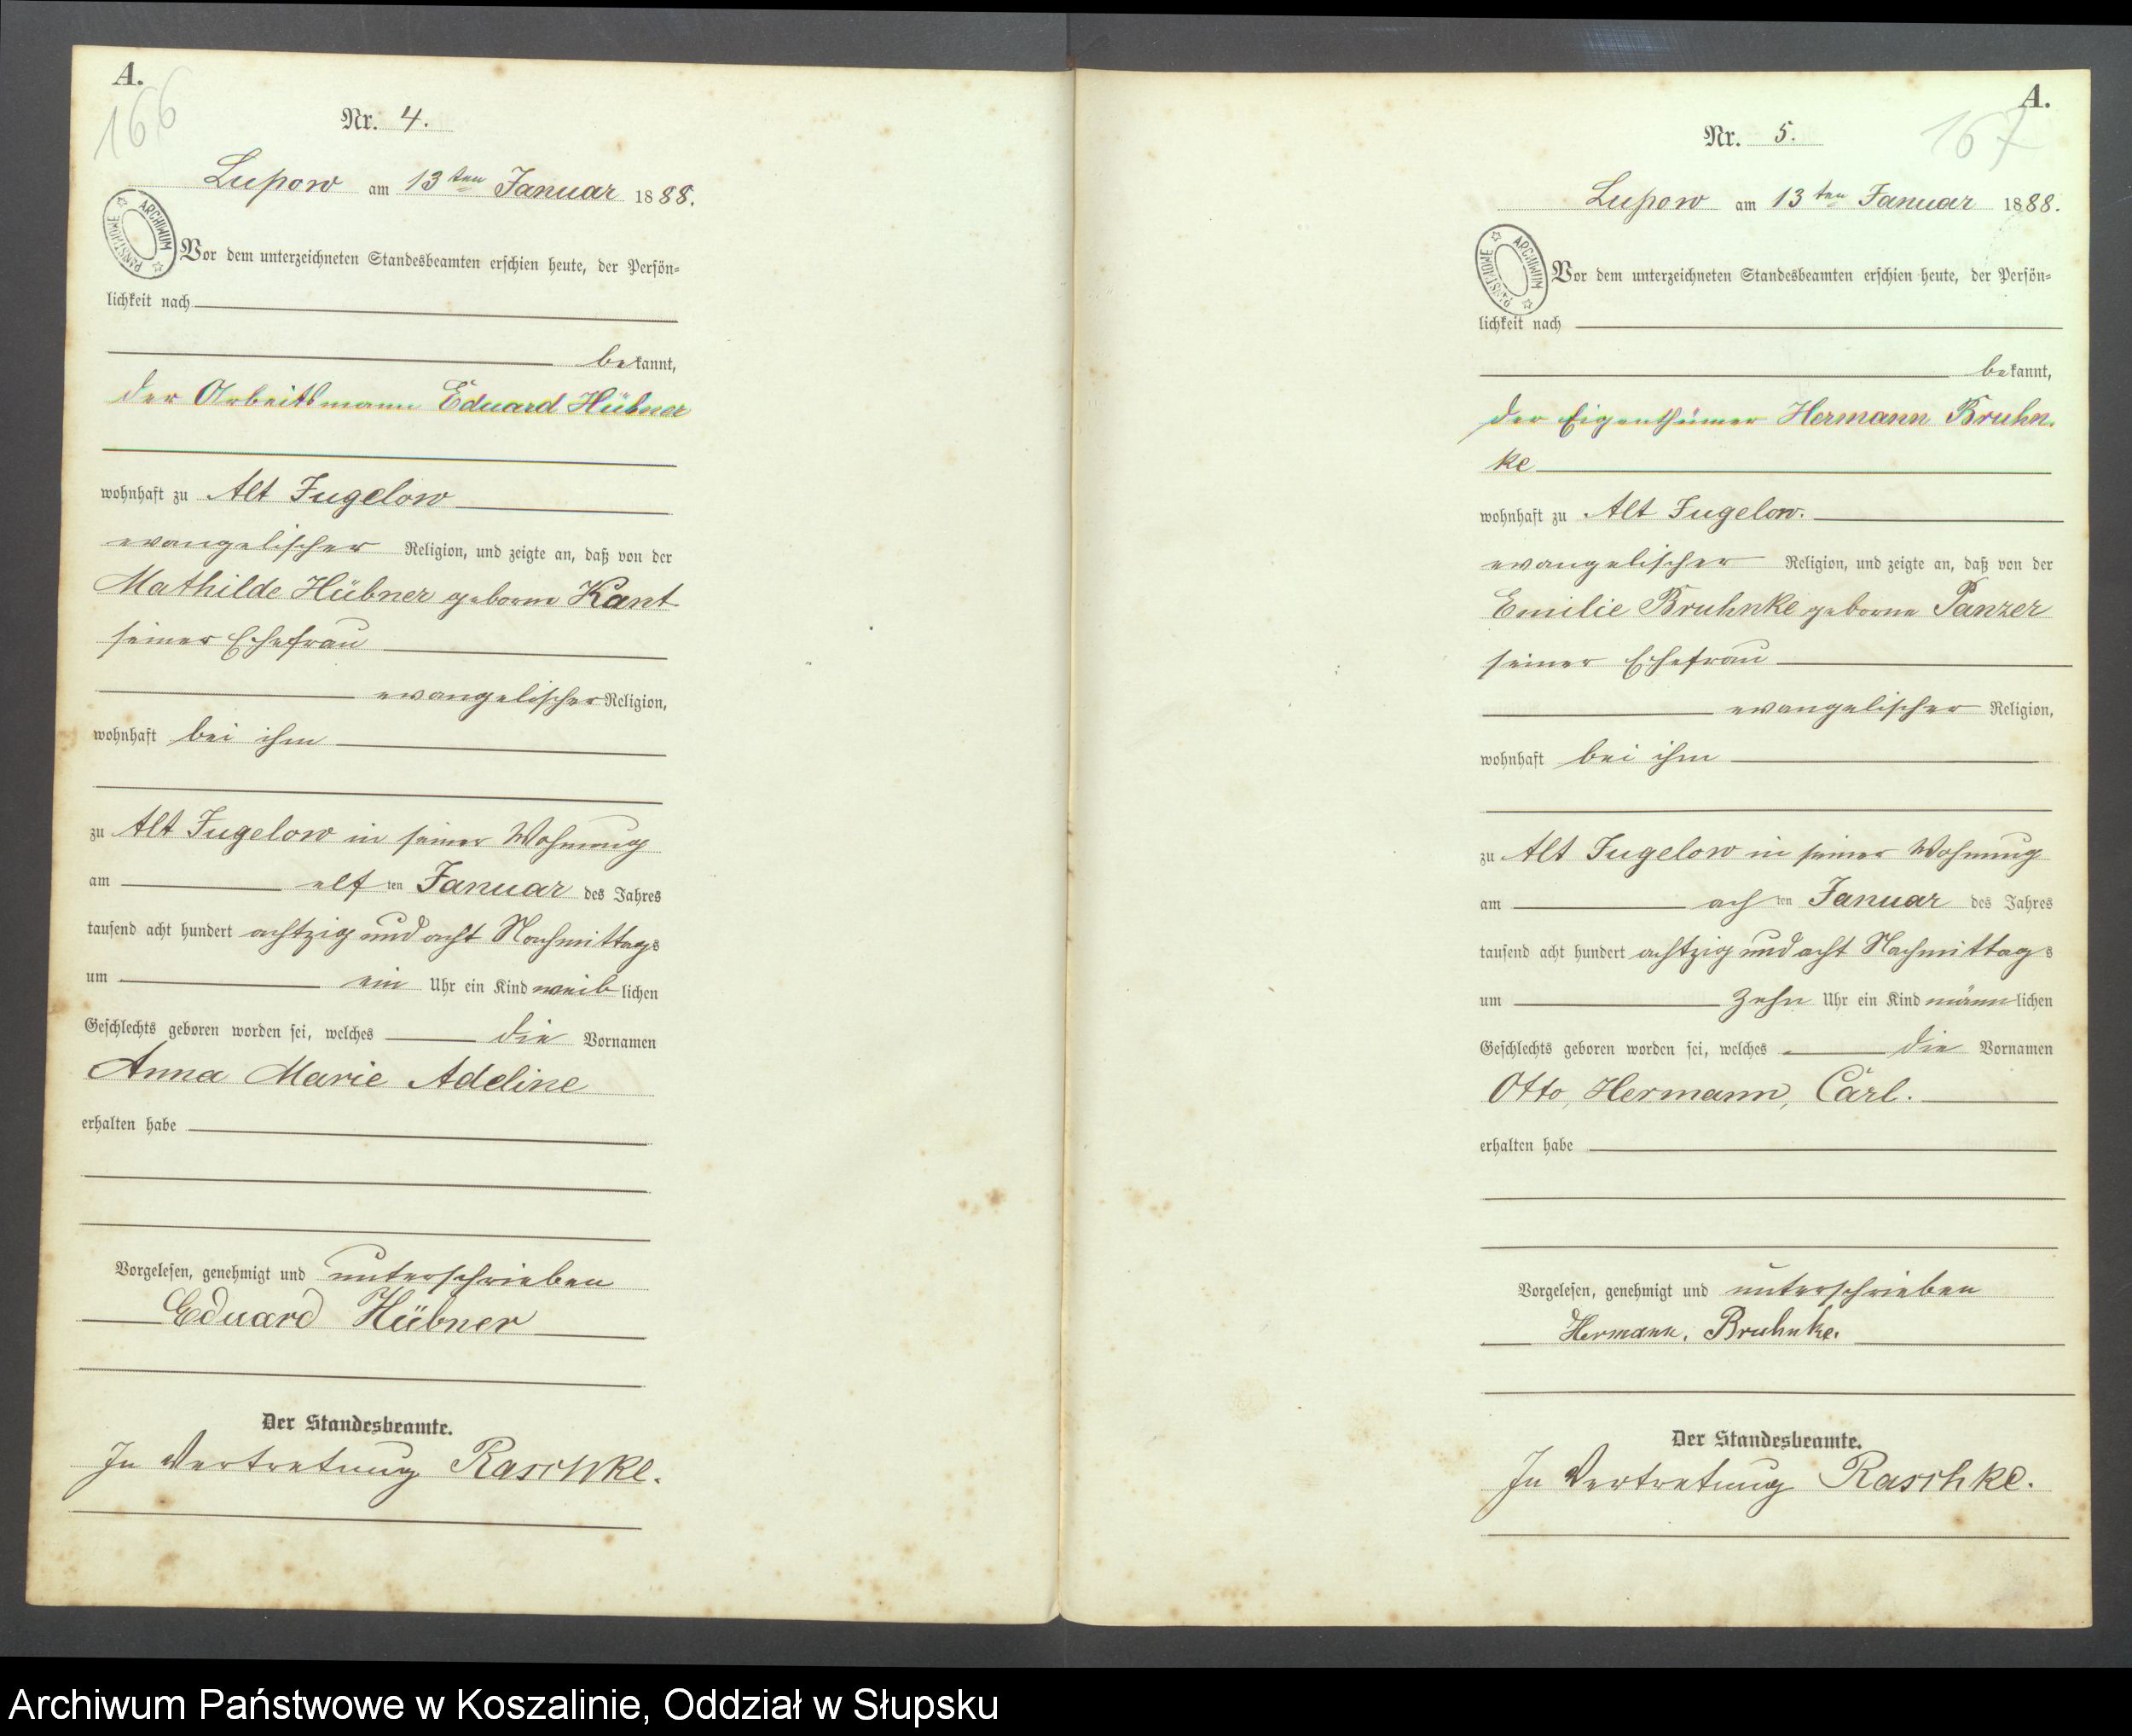 A.
166
Nr. 4.
Lupow am 13ten Januar 1888.
ARCHIWUM PAŃSTWOWE
Vor dem unterzeichneten Standesbeamten erschien heute, der Persön=
lichkeit nach
bekannt,
der Arbeitsmann Eduard Hübner
wohnhaft zu Alt Jugelow
evangelischer Religion, und zeigte an, daß von der
Mathilde Hübner geborne Kant
seiner Ehefrau
evangelischer Religion,
wohnhaft bei ihm
zu Alt Jugelow in seiner Wohnung
am elf ten Januar des Jahres
tausend acht hundert achtzig und acht Nachmittags
um ein Uhr ein Kind weiblichen
Geschlechts geboren worden sei, welches die Vornamen
Anna Marie Adeline
erhalten habe
Vorgelesen, genehmigt und unterschrieben
Eduard Hübner
Der Standesbeamte.
In Vertretung Raschke.
A.
167
Nr. 5.
Lupow am 13ten Januar 1888.
ARCHIWUM PAŃSTWOWE
Vor dem unterzeichneten Standesbeamten erschien heute, der Persön=
lichkeit nach
bekannt,
der Eigenthümer Hermann Bruhn-
ke
wohnhaft zu Alt Jugelow.
evangelischer Religion, und zeigte an, daß von der
Emilie Bruhnke geborne Panzer
seiner Ehefrau
evangelischer Religion,
wohnhaft bei ihm
zu Alt Jugelow in seiner Wohnung
am ach ten Januar des Jahres
tausend acht hundert achtzig und acht Nachmittags
um zehn Uhr ein Kind männlichen
Geschlechts geboren worden sei, welches die Vornamen
Otto, Hermann, Carl.
erhalten habe
Vorgelesen, genehmigt und unterschrieben
Hermann. Bruhnke.
Der Standesbeamte.
In Vertretung Raschke.
Archiwum Państwowe w Koszalinie, Oddział w Słupsku